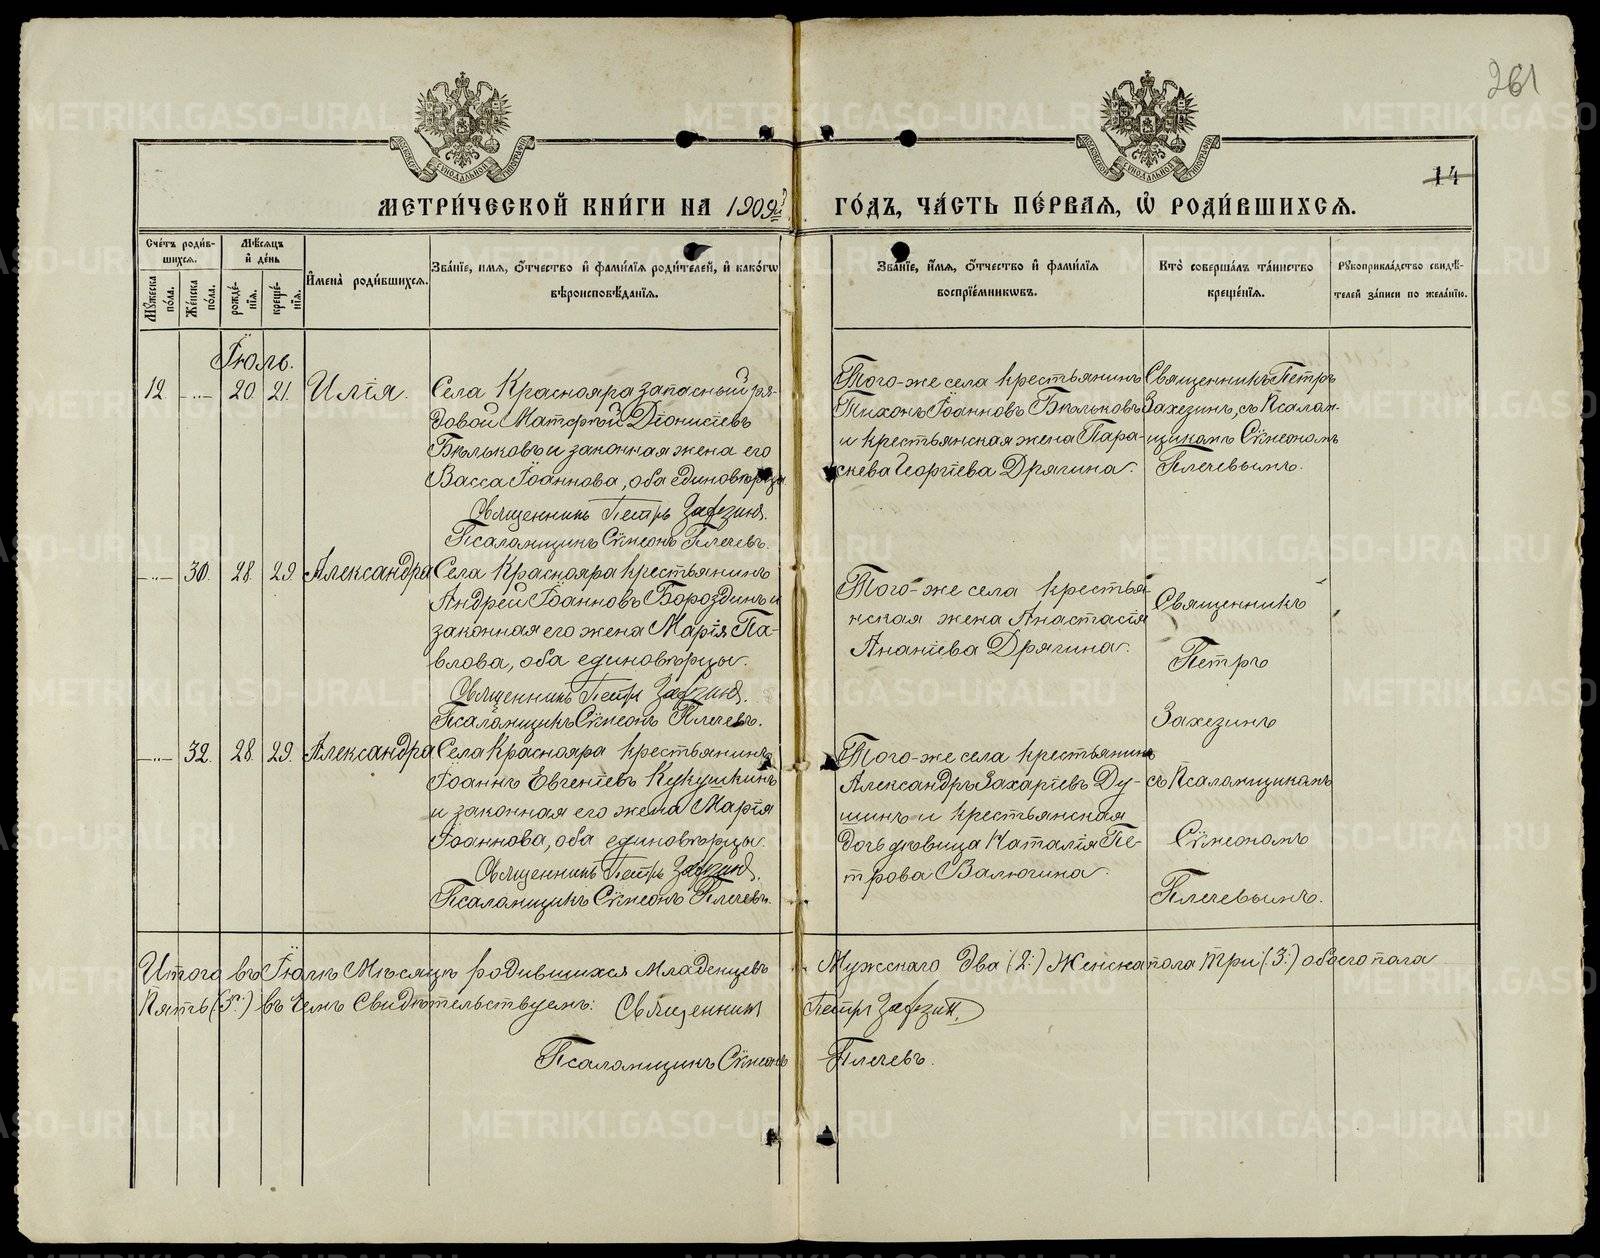 261
14
МЕТРИ́ЧЕСКОЙ КНИ́ГИ НА 1909й
ГО́ДЪ, ЧА́СТЬ ПЕ́РВАЯ, Ѡ РОДИ́ВШИХСЯ.
Сче́тъ роди́в-
шихся.
Мѣ́сяцъ
и҆ де́нь
Мꙋ́жеска по́ла.
Же́нска по́ла.
рожде́-
нїя.
креще́-
нїя.
И҆мена̀ роди́вшихся.
Зва́нїе, имя, о҆́тчество и҆ фами́лїя роди́телей, и҆ како́гѡ
вѣроисповѣ́данїя.
Зва́нїе, и҆́мя, о҆́тчество и҆ фами́лїя
воспрїе́мникѡвъ.
Кто̀ соверша́лъ та́инство
креще́нїя.
Рꙋкоприкла́дство свидѣ́-
телей за́писи по жела́нїю.
Іюль.
12 -"- 20. 21. Илія.
Села Краснояра запасный ря-
довой Матфей Діонисіевъ
Бѣльковъ и законная жена его
Васса Іоаннова, оба единовѣрцы
Священникъ Петръ Захезинъ.
Псаломщикъ Сѵмеонъ Плечевъ.
Того-же села крестьянинъ
Тихонъ Іоанновъ Бѣльковъ
и крестьянская жена Пара-
скева Георгіева Дрягина.
Священникъ Петръ
Захезинъ, съ Псалом-
щикомъ Сѵмеономъ
Плечевымъ.
-"- 30. 28. 29. Александра
Села Краснояра крестьянинъ
Андрей Іоанновъ Бороздинъ и
законная его жена Марія Па-
влова, оба единовѣрцы.
Священникъ Петръ Захезинъ.
Псаломщикъ Сѵмеонъ Плечевъ.
Того-же села крестья-
нская жена Анастасія
Ананіева Дрягина.
Священникъ
Петръ
Захезинъ
-"- 32. 28. 29. Александра
Села Краснояра крестьянинъ
Іоаннъ Евгеніевъ Кукушкинъ
и законная его жена Марія
Іоаннова, оба единовѣрцы.
Священникъ Петръ Захезинъ.
Псаломщикъ Сѵмеонъ Плечевъ.
Того-же села крестьянинъ
Александръ Захаріевъ Ду-
шинъ и крестьянская
дочь дѣвица Наталія Пе-
трова Валюгина.
съ Псаломщикомъ
Сѵмеономъ
Плечевымъ.
Итого въ Іюлѣ Мѣсяцѣ родившихся Младенцевъ Мужскаго Два (2.) Женска пола три (3.) обоего пола
Пять (5.) въ чемъ Свидѣтельствуемъ: Священникъ Петръ Захезинъ.
Псаломщикъ Сѵмеонъ Плечевъ.
METRIKI.GASO-URAL.RU